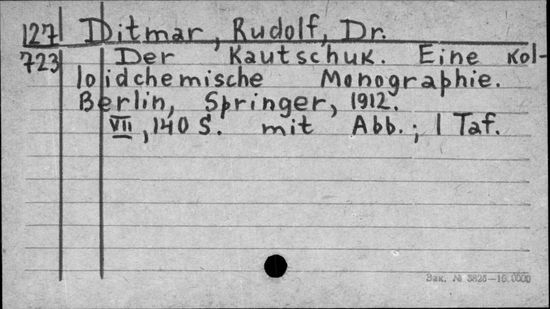 127 Ditmar, Rudolf, Dr.
723 Der Kautschuk. Eine Kol-
loidchemische Monographie.
Berlin, Springer, 1912.
VII, 140 S. mit Abb.; 1 Taf.
Зак. №